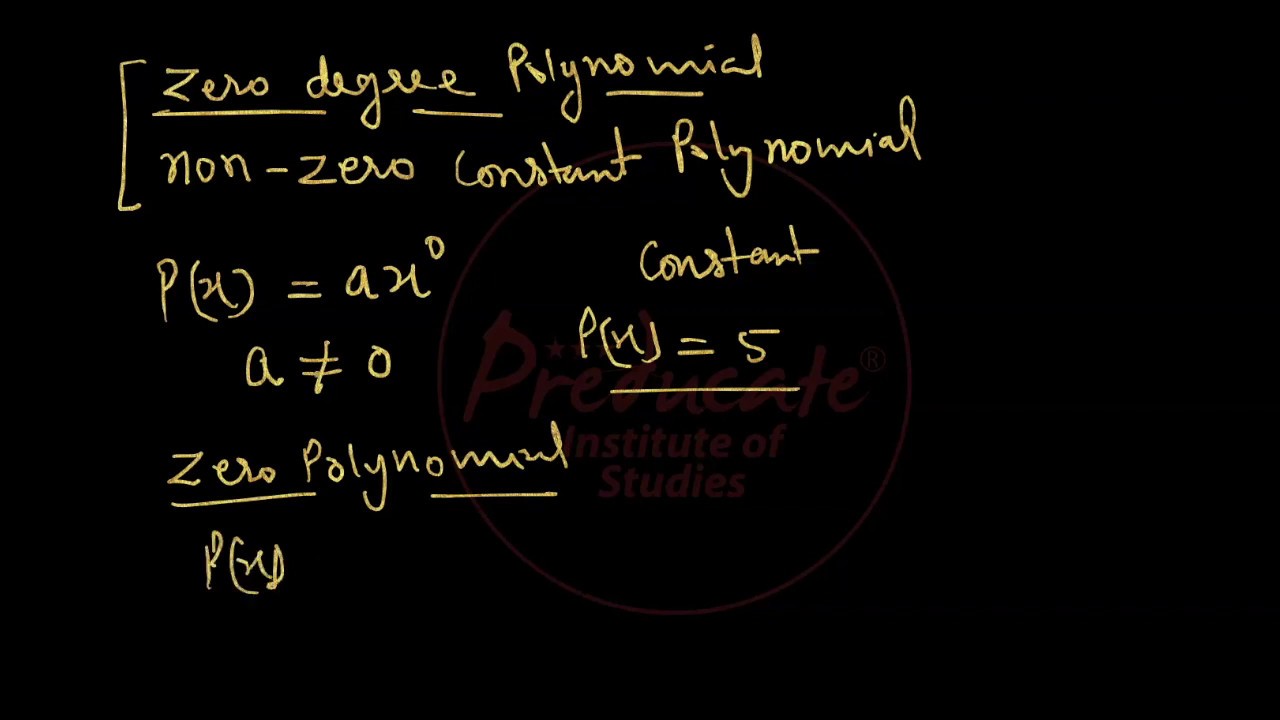 Zero degree Polynomial
non-zero constant Polynomial
P(x) = ax⁰
a ≠ 0
constant
P(x) = 5
Zero Polynomial
P(x)
Preducate®
Institute of
Studies